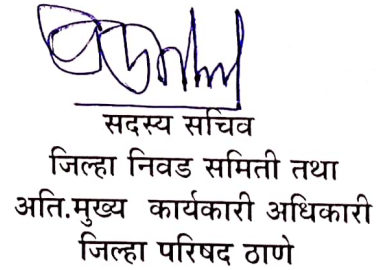 सदस्य सचिव
जिल्हा निवड समिती तथा
अति.मुख्य कार्यकारी अधिकारी
जिल्हा परिषद ठाणे